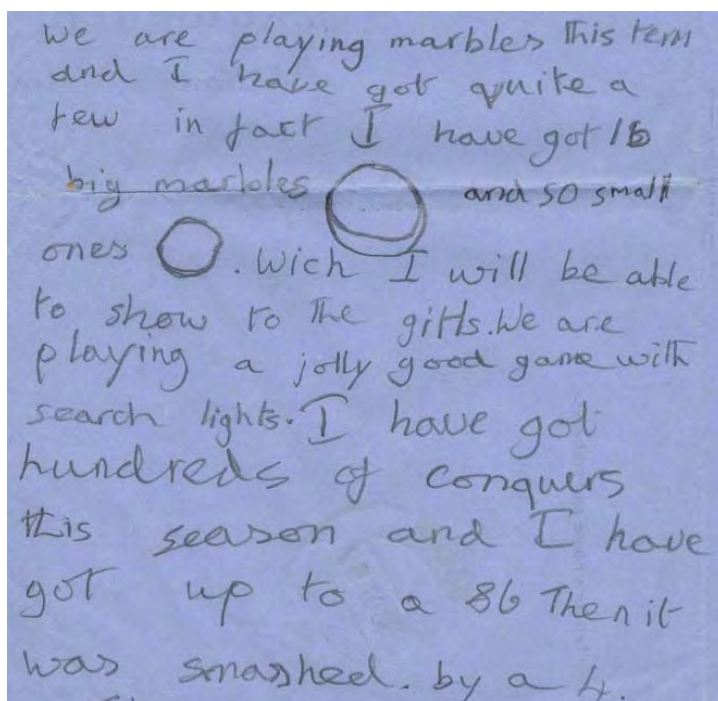 we are playing marbles this term
and I have got quite a
few in fact I have got 16
big marbles and 50 small
ones . Wich I will be able
to show to the girls. We are
playing a jolly good game with
search lights. I have got
hundreds of conquers
this season and I have
got up to a 86 Then it
was smashed. by a 4.